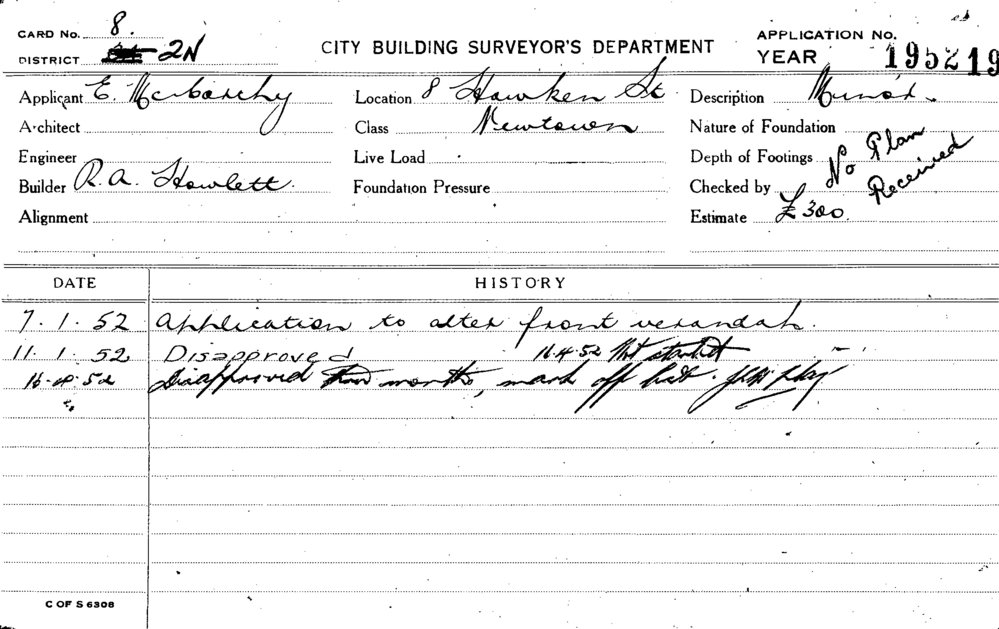 CARD No. 8.
DISTRICT 2N
CITY BUILDING SURVEYOR'S DEPARTMENT
APPLICATION No.
YEAR 1952 19
Applicant E. McCarthy
Location 8 Hawken St
Description Minor.
Architect
Class Newtown
Nature of Foundation
Engineer
Live Load
Depth of Footings No Plan
Builder R.A. Howlett.
Foundation Pressure
Checked by Received
Alignment
Estimate £300.
DATE
HISTORY
7.1.52 Application to alter front verandah.
11.1.52 Disapproved 16.4.52 Not started
Disapproved months, mark off list.
C OF S 6308